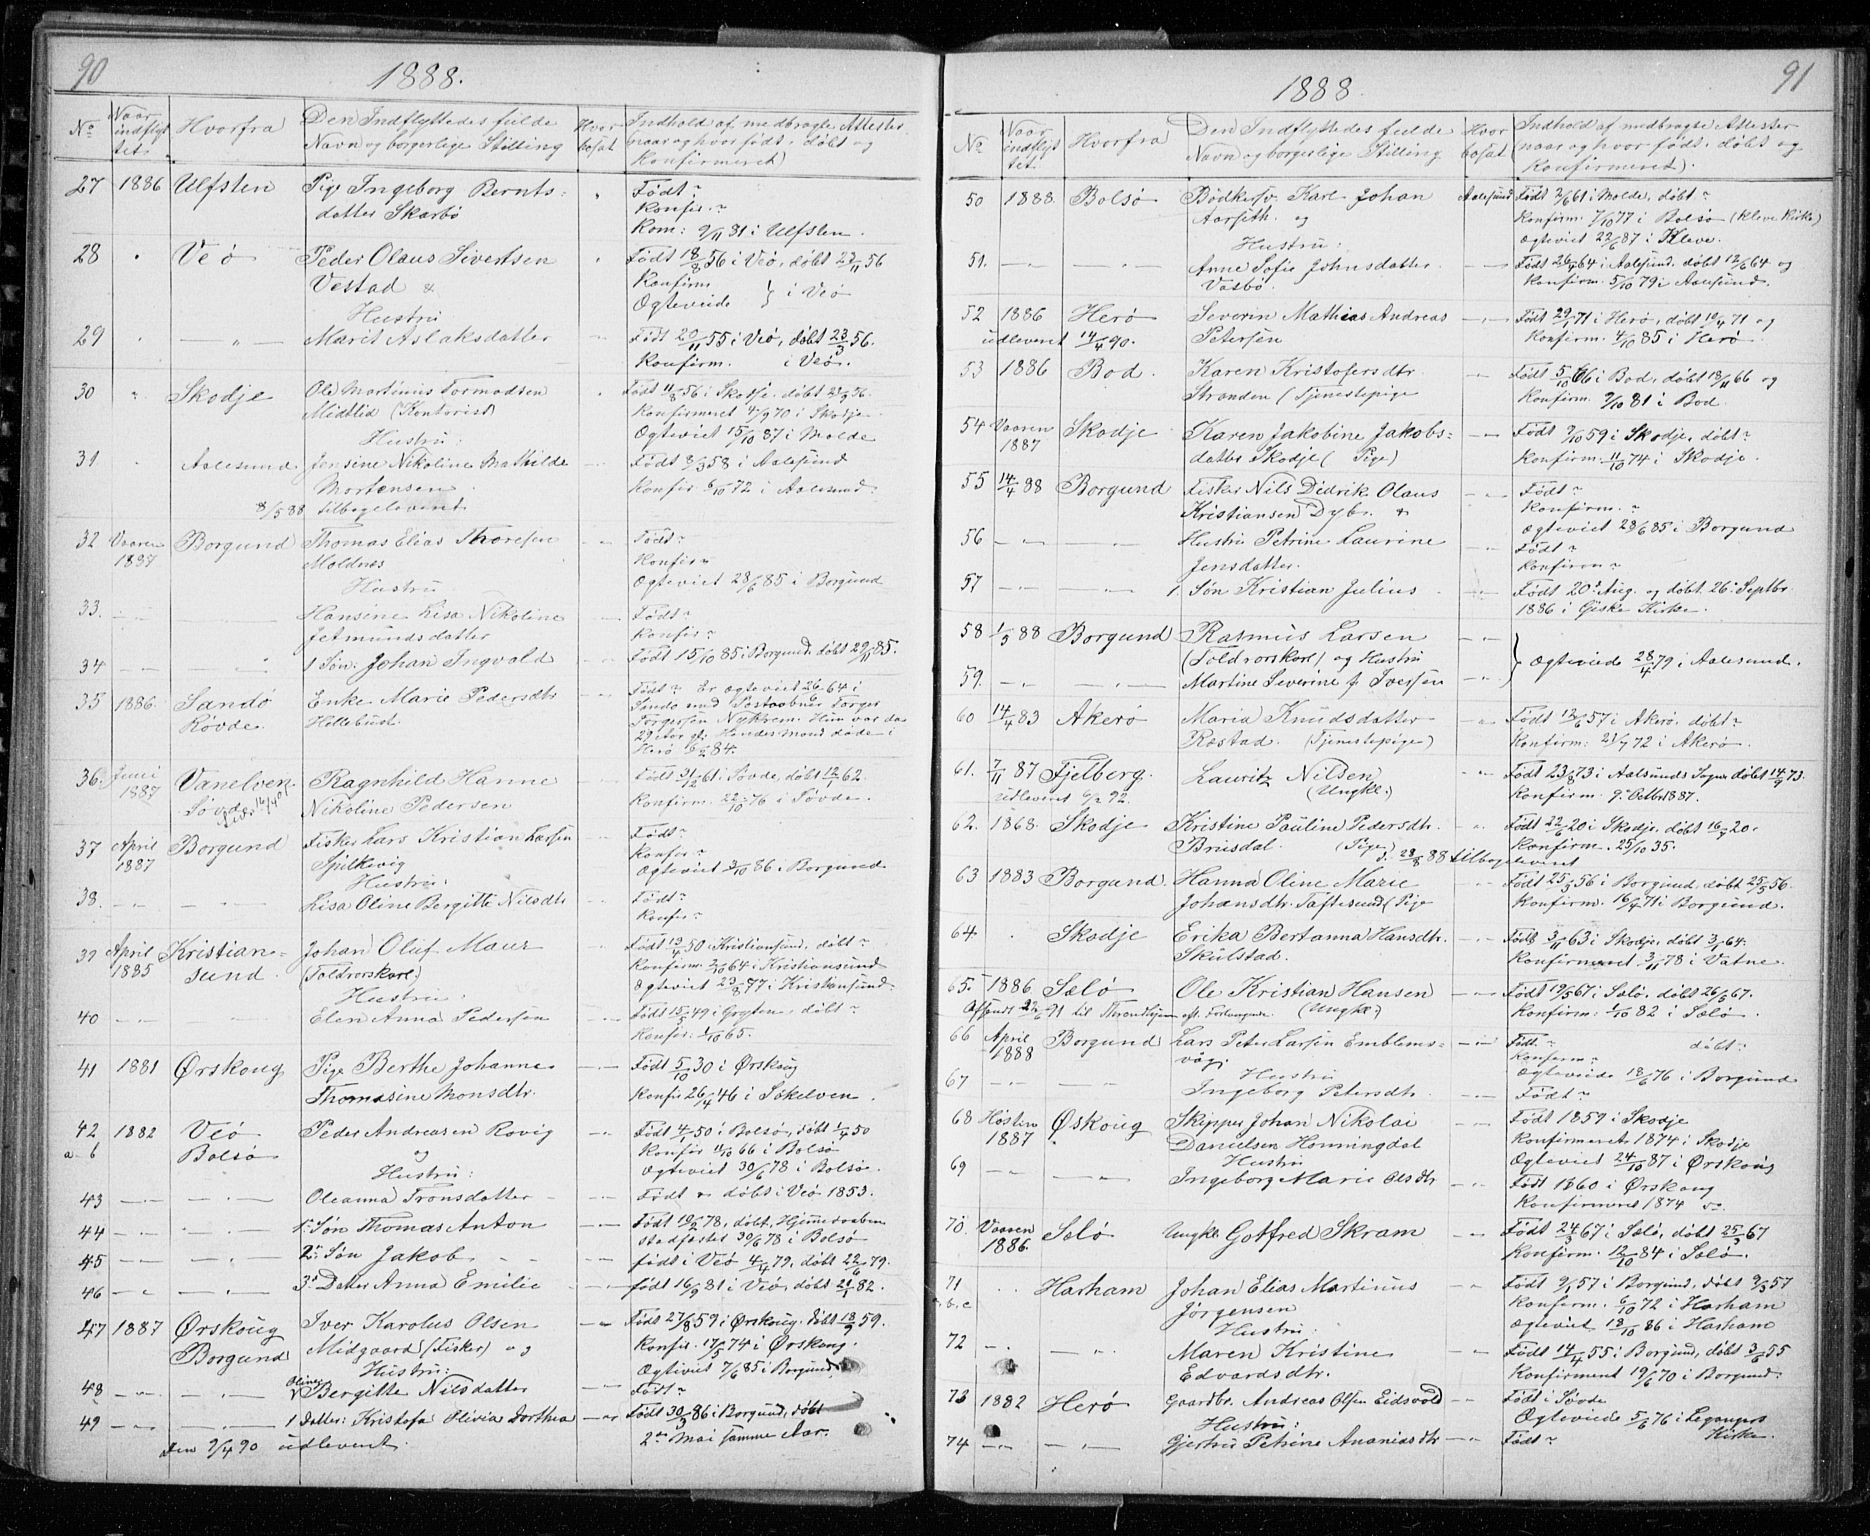 90
1888.
No
Naar indflyttet.
Hvorfra
Den Indflyttedes fulde Navn og borgerlige Stilling
Hvor bosat
Indhold af medbragte Attester (naar og hvor født, døbt og Konfirmeret)
27 1886 Ulfsten Pige Ingeborg Bernts= Født?
datter Skarbø Konfir.?
Kom: 9/11 81 i Ulfsten.
28 " Veø Peder Olaus Sivertsen Født 18/8 56 i Veø, døbt 23/11 56
Vestad & Konfirm
Hustru Ogteviede } i Veø
29 — " — Marit Aslaksdatter Født 20/11 55 i Veø, døbt 23/3 56.
Konfirm. i Veø.
30 " Skodje Ole Martinius Tormodsen Født 11/8 56 i Skodje, døbt
Midtlid (Kontorist) Konfirmeret 4/9 70 i Skodje
Hustru: Ogteviet 15/10 87 i Molde
31 " Aalesund Jensine Nikoline Mathilde Født 8/3 58 i Aalesund
Mortensen Konfir 6/10 72 i Aalesund.
8/5 88 tilbageleveret
32 Vaaren Borgund Thomas Elias Thoresen Født?
1887 Moldnes Konfir?
Hustru Ogteviet 28/6 85 i Borgund
33. — — Hansine Lisa Nikoline Født?
Jetmundsdatter Konfir?
34 — — 1 Søn: Johan Ingvold Født 15/10 85 i Borgund, døbt 29/11 85.
35 1886. Sandø Enke Marie Pedersdtr Født? Er ogteviet 26/6 64 i
Røvde. Hellebust Sande med Postaabner Torger
Torgersen Nykrem. Hun var da
29 Aar gl: Hendes Mand døde i
Herø 84.
36. Juni Vanelven Ragnhild Hanne Født 31/12 61 i Søvde, døbt 12/1 62.
1887 Søvde Nikoline Pedersen Konfirm. 22/10 76 i Søvde.
37 April Borgund Fisker Lars Kristian Larsen Født?
1887 Spilkevig Konfir?
Hustru: Ogteviet 3/10 86 i Borgund
38. — — Lisa Oline Bergitte Nilsdtr Født?
Konfir?
39 April Kristian= Johan Oluf Maur Født 13/4 50 i Kristiansund, døbt?
1885 sund. (Toldrorskarl) Konfirm. 2/10 64 i Kristiansund
Hustru: Ogteviet 23/8 77 i Kristiansund
40 — — Elen Anna Pedersen Født 15/5 49 i Gryten, døbt?
Konfir: 1/10 65.
41 1881 Ørskoug Pige Berthe Johanne Født 5/10 30 i Ørskoug
Thomasine Monsdtr. Konfir 26/4 46 i Søkelven.
42 1882 Veø Peder Andreasen Røvig Født 4/1 50 i Bolsø, døbt 1/4 50
a-b Bolsø og Konfir 11/10 66 i Bolsø
Hustru: Ogteviet 30/6 78 i Bolsø.
43 — — Oleanna Tronsdatter Født & døbt i Veø 1853.
44 — — 1ste Søn Thomas Anton Født 10/2 78, døbt, Hjemmedaaben
stadfæstet 30/6 78 i Bolsø
45 — — 2den Søn Jakob født i Veø 4/4 79, døbt 22/6 79.
46 — — 3die Datter Anna Emilie født 16/9 81 i Veø, døbt 21/1 82.
47 1887 Ørskoug Iver Karolus Olsen Født 27/8 59 i Ørskoug, døbt 18/9 59.
Borgund Midgaard (Fisker) og Konfir. 17/5 74 i Ørskoug.
Hustru: Ogteviet 7/6 85 i Borgund
48 — — Oline Bergitte Nilsdatter Født?
49 — — 1 Datter: Kristofa Olivia Dorthea Født 30/3 86 i Borgund, døbt
Den 9/4 90 udleveret. 2den Mai samme Aar.
91
1888.
No
Naar indflyttet.
Hvorfra
Den Indflyttedes fulde Navn og borgerlige Stilling
Hvor bosat
Indhold af medbragte Attester (naar og hvor født, døbt og Konfirmeret).
50 1888. Bolsø Bødkersv. Karl Johan Aalesund Født 2/6 61 i Molde, døbt?
Aarseth. og Konfirm. 7/10 77 i Bolsø (Kleve Kirke)
Hustru: Ogteviet 22/6 87 i Kleve.
51. — — Anne Sofie Johnsdatter Født 26/4 64 i Aalesund, døbt 12/6 64 og
Vasbø. Konfirm. 5/10 79 i Aalesund.
52 1886 Herø Severin Mathias Andreas Født 29/1 71 i Herø, døbt 10/4 71 og
udleveret 14/4 90. Petersen Konfirm. 4/10 85 i Herø.
53 1886 Bod. Karen Kristofersdtr Født 5/10 66 i Bod, døbt 18/11 66 og
Stranden (Tjenestepige Konfirm. 9/10 81 i Bod.
54 Vaaren Skodje Karen Jakobine Jakobs= Født 7/10 59 i Skodje, døbt?
1887 datter Skodje (Pige) Konfirm. 11/10 74 i Skodje.
55 14/4 88 Borgund Fisker Nils Didrik Olaus Født?
Kristiansen Dyb. & Konfirm.?
Ogteviet 28/6 85 i Borgund
56 — — Hustru Petrine Laurine Født?
Jensdatter. Konfirm?
57 — — 1 Søn Kristian Julius Født 20de Aug. og døbt. 26de Septbr.
1886 i Giske Kirke.
58 1/5 88 Borgund Rasmus Larsen
(Toldrorskarl) og Hustru } Ogteviede 28/4 79 i Aalesund.
59. — — Martine Severine f. Iversen
60 14/4 83 Akerø Maria Knudsdatter Født 13/6 57 i Akerø, døbt?
Røstad. (Tjenestepige) Konfirm: 21/7 72 i Akerø.
61. 7/11 87 Fjelberg. Lauritz Nilsen Født 23/8 73 i Aalsunds Sogn døbt 14/9 73.
Udleveret 6/2 92. (Ungk:) Konfirm. 9de Octbr 1887.
62. 1868. Skodje Kristine Pauline Pedersdtr. Født 22/6 20 i Skodje, døbt 16/7 20.
Brusdal. (Pige) Konfirm. 25/10 35.
d. 28/8 88 tilbageleveret
63 1883 Borgund Hanna Oline Marie Født 25/3 56 i Borgund, døbt 25/5 56.
Johansdtr. Taftesund (Pige Konfirm. 16/4 71 i Borgund.
64. Skodje Erika Bertanna Hansdtr. Født 3/11 63 i Skodje, døbt 3/1 64.
Skulstad. Konfirmeret 3/11 78 i Vatne.
65. 1886 Selø Ole Kristian Hansen Født 19/5 67 i Selø, døbt 26/5 67.
Afsendt 22/6 91 til Throndhjem eft. Forlangende. (Ungk:) Konfirm: 1/10 82 i Selø.
66 April Borgund Lars Peter Larsen Emblems= Født.? døbt?
1888 våg. Konfirm?
Hustru Ogteviede 18/6 76 i Borgund
67 — — Ingeborg Petersdtr. Født?
68 Høsten Øskoug Skipper Johan Nikolai Født 1859 i Skodje
1887 Danielsen Honningdal Konfirmeret 1874 i Skodje
Hustru Ogteviet 24/10 87 i Ørskoug
69 — — Ingeborg Marie Olsdtr Født 1860 i Ørskoug
Konfirmeret 1874 do.
70. Vaaren Selø Ungk. Gotfred Skram Født 24/2 67 i Selø, døbt 25/3 67
1886. Konfirm. 12/10 84 i Selø.
71 Harham Johan Elias Martinus Født 9/1 57 i Borgund, døbt 9/3 57
a, b, c Jørgensen Konfirm. 6/10 72 i Harham
Hustru: Ogteviet 13/10 86 i Harham
72 Maren Kristine Født 14/4 55 i Borgund, døbt 3/6 55
Edvardsdtr. Konfirmeret 19/6 70 i Borgund.
73 1882 Herø Gaardbr. Andreas Olsen Eidsvold Født i Søvde
Hustru: Ogteviede 5/6 76 i Leganger Kirke.
74 — — Gjertru Petrine Ananiasdtr Født?